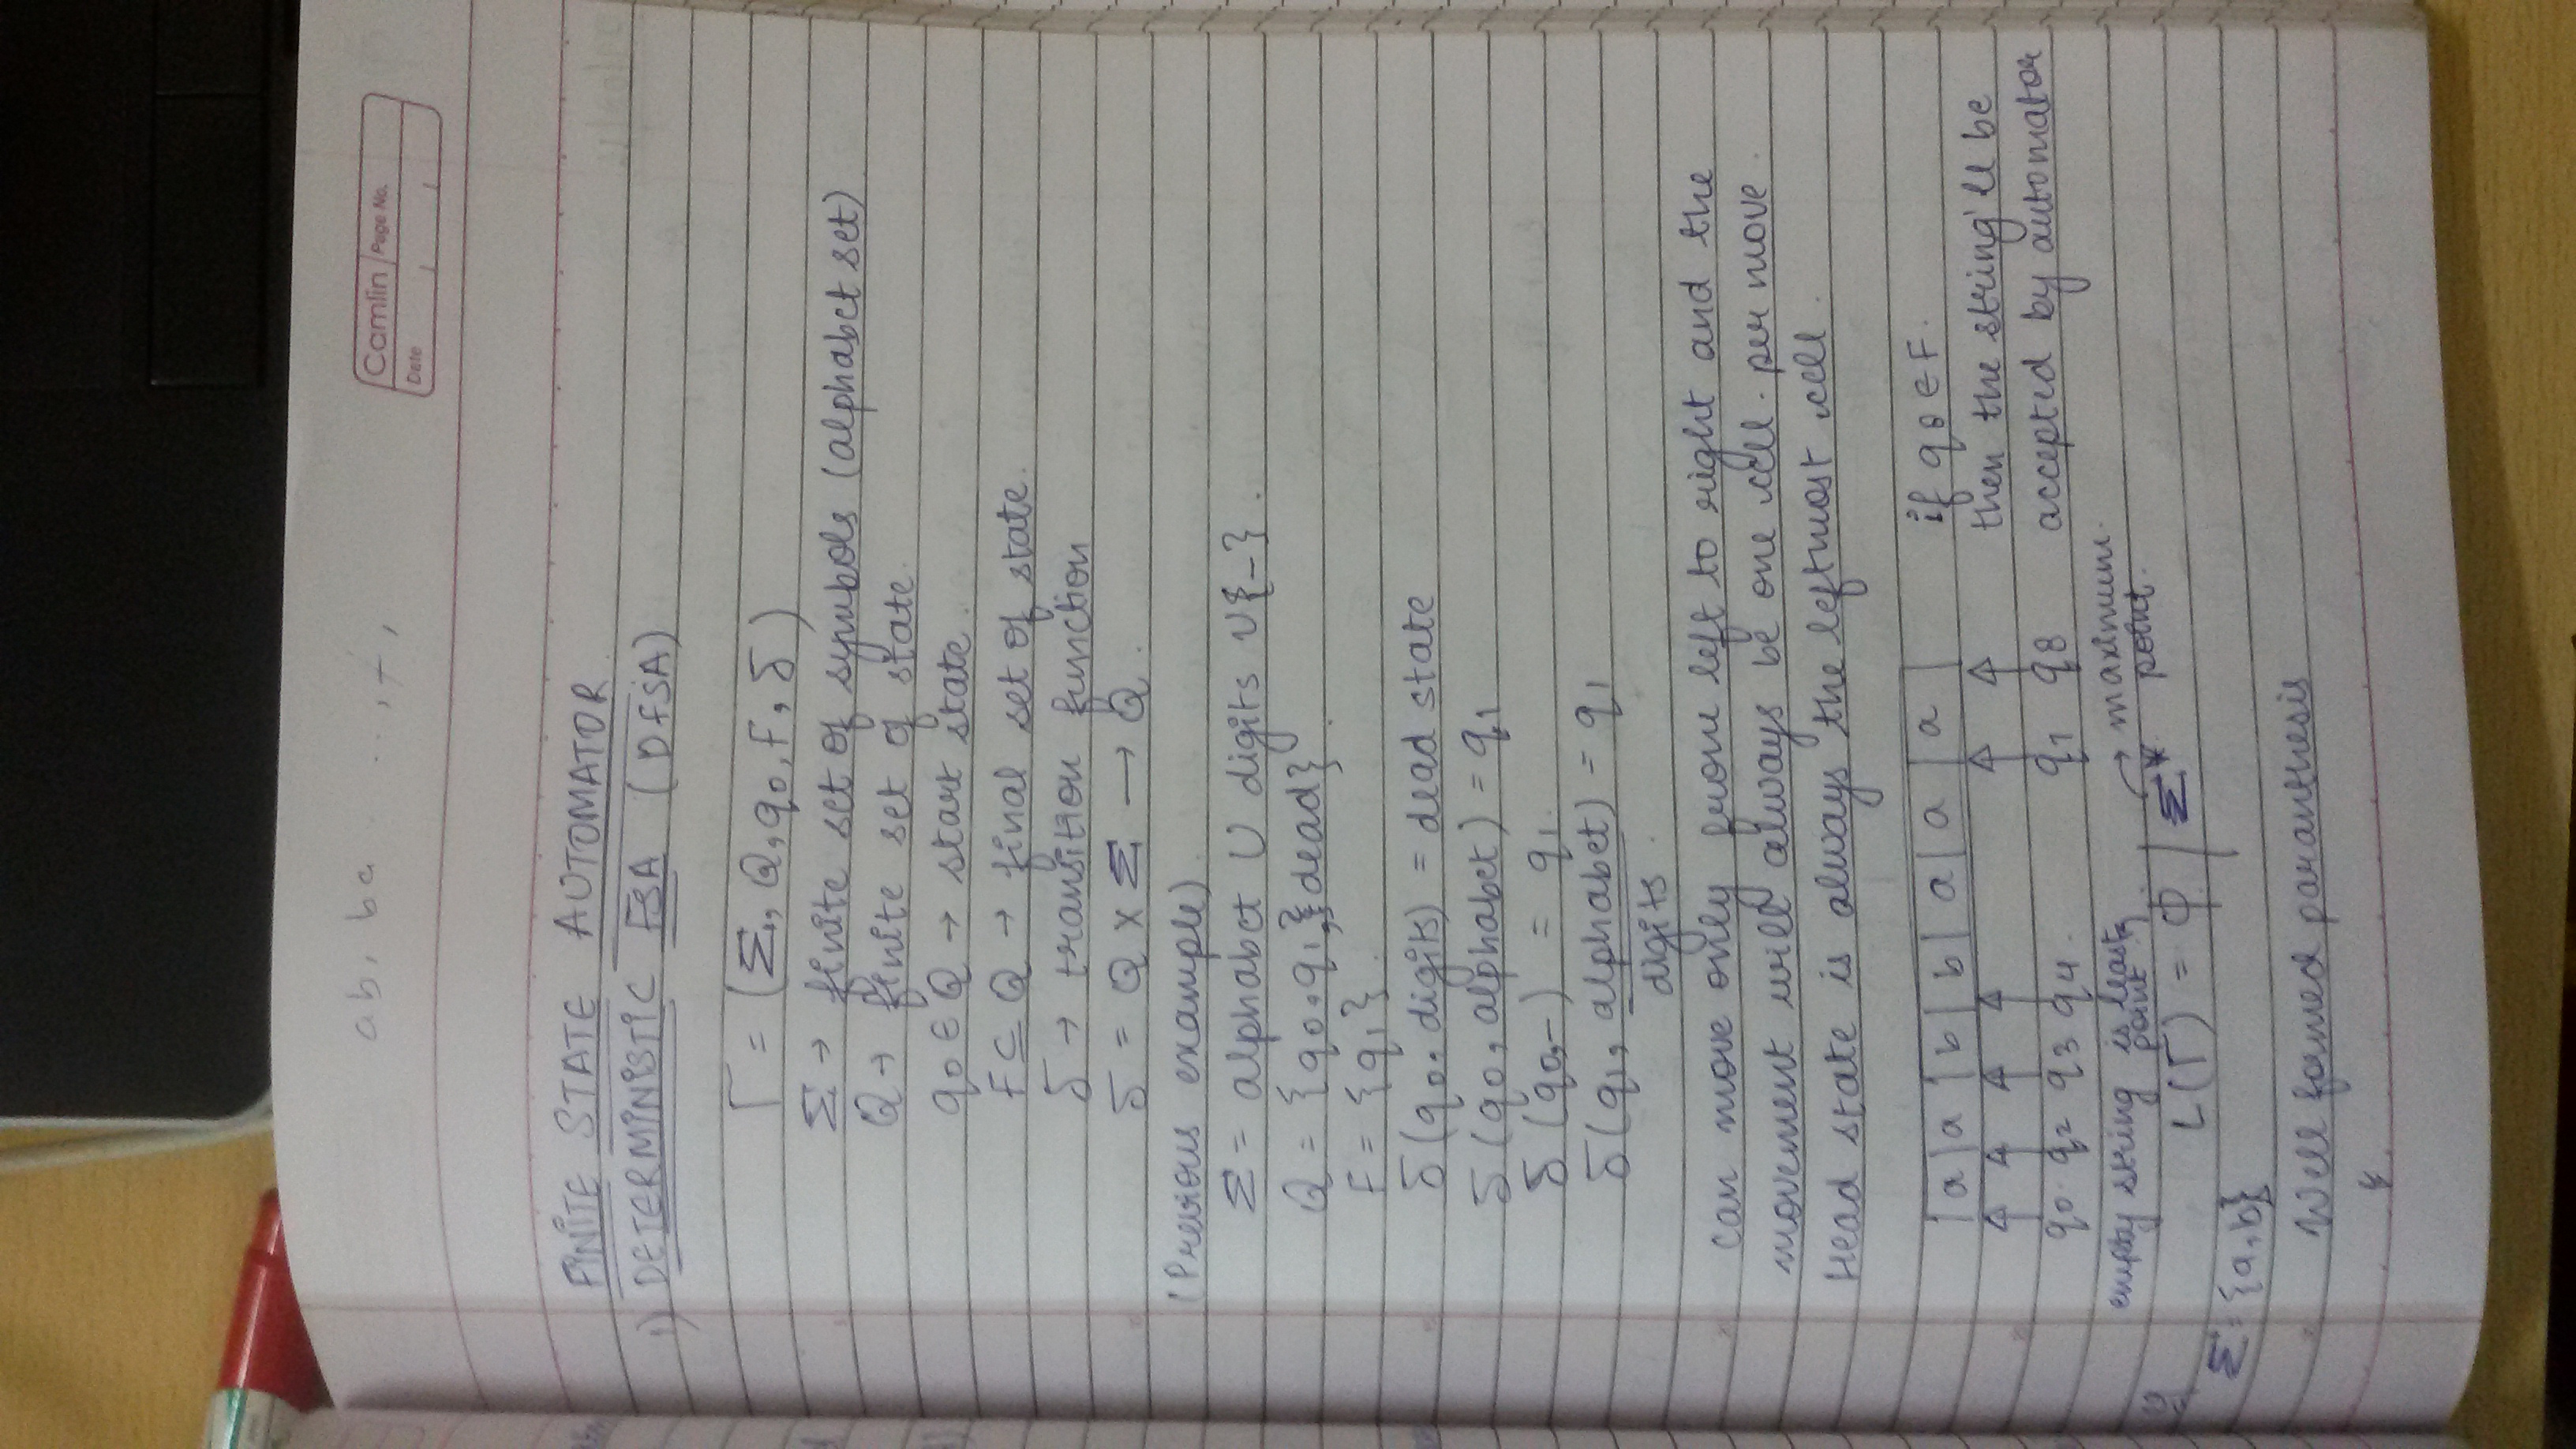 ab, ba ..,+,
Camlin Page No.
Date
FINITE STATE AUTOMATOR.
1) DETERMINISTIC FSA (DFSA)
Γ = (Σ, Q, q0, F, δ)
Σ → finite set of symbols (alphabet set)
Q → finite set of state.
q0 ∈ Q → start state.
F ⊆ Q → final set of state.
δ → transition function
δ = Q × Σ → Q.
(Previous example).
Σ = alphabet ∪ digits ∪ {_}.
Q = {q0, q1, dead}.
F = {q1}.
δ(q0, digits) = dead state
δ(q0, alphabet) = q1
δ(q0, _) = q1.
δ(q1, alphabet) = q1
digits.
can move only from left to right and the
movement will always be one cell per move.
Head state is always the leftmost cell.
a a b b a a a if q8 ∈ F.
then the string'll be
q0 q2 q3 q4 q7 q8 accepted by automator
empty string is least → maximum.
point point.
L(Γ) = φ | Σ*
Σ = {a, b}
Well formed paranthesis